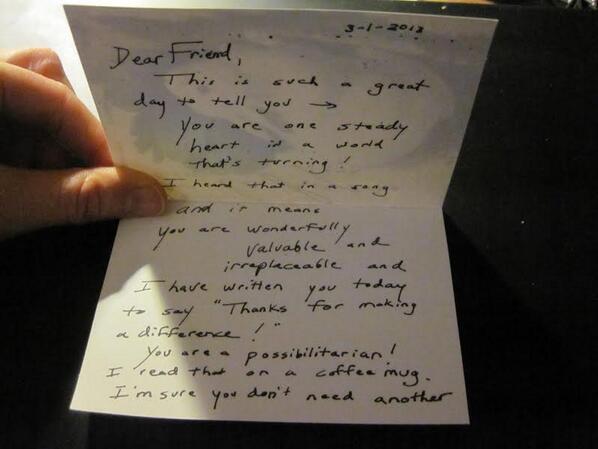 3-1-2013
Dear Friend,
This is such a great
day to tell you →
You are one steady
heart in a world
that's turning!
I heard that in a song
and it means
you are wonderfully
valuable and
irreplaceable and
I have written you today
to say "Thanks for making
a difference!"
You are a possibilitarian!
I read that on a coffee mug.
I'm sure you don't need another